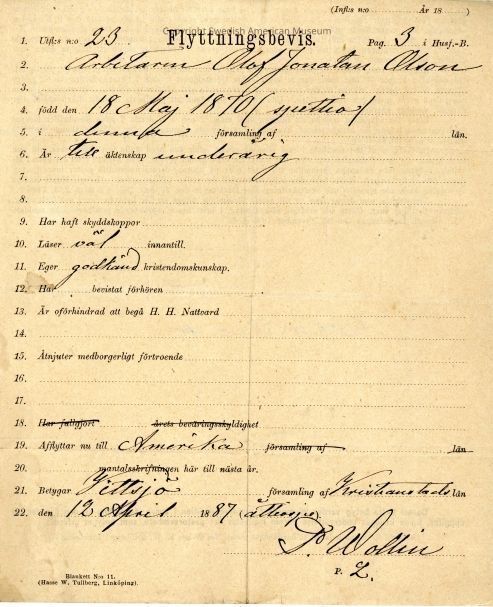 (Infl:s n:o År 18
Copyright Swedish American Museum
1. Utfl:s n:o 23. Flyttningsbevis. Pag. 3 i Husf.-B.
2. Arbetaren Olof Jonatan Olson
3.
4. född den 18 Maj 1870 (sjuttio)
5. i denna församling af län.
6. Är till äktenskap underårig
7.
8.
9. Har haft skyddskoppor
10. Läser väl innantill.
11. Eger godkänd kristendomskunskap.
12. Har bevistat förhören
13. Är oförhindrad att begå H. H. Nattvard
14.
15. Åtnjuter medborgerligt förtroende
16.
17.
18. Har fullgjort årets beväringsskyldighet
19. Afflyttar nu till Amerika församling af län
20. mantalsskrifningen här till nästa år.
21. Betygar Vittsjö församling af Kristianstads län
22. den 12 April 1887 (åttiosju).
P. Wollin
P. L.
Blankett N:o 11.
(Hasse W. Tullberg, Linköping).